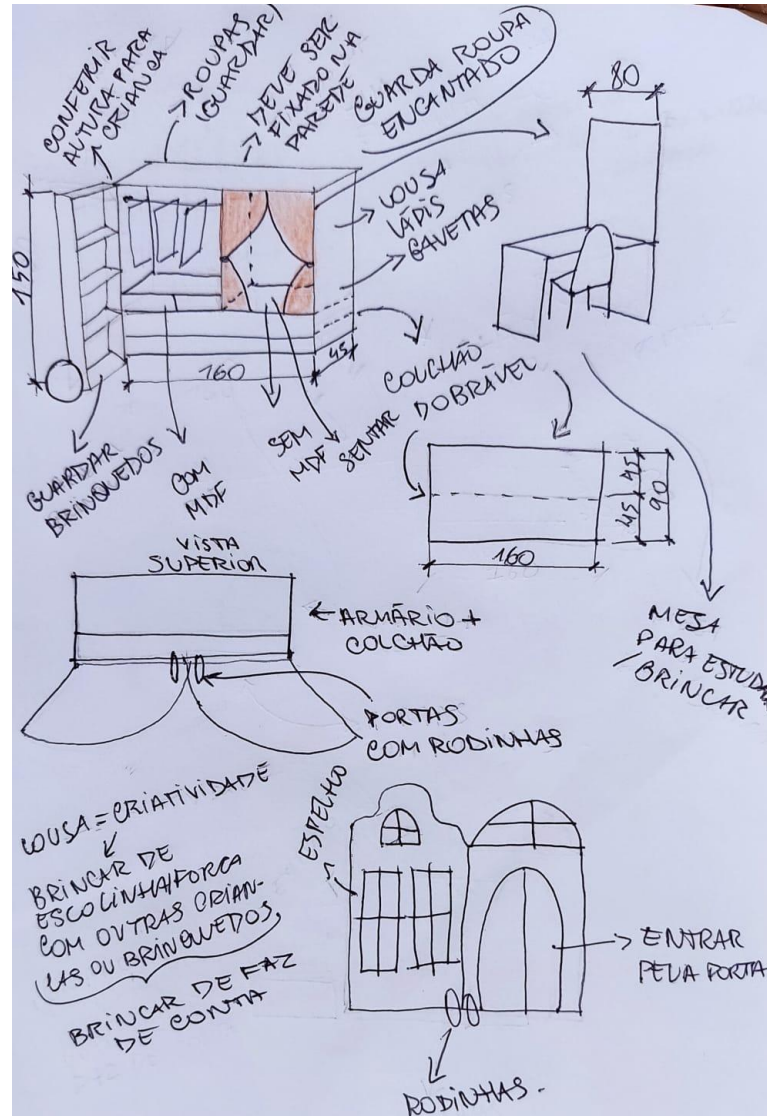 CONFERIR
ALTURA PARA
CRIANÇA
ROUPAS
(GUARDAR)
DEVE SER
FIXADO NA
PAREDE
GUARDA ROUPA
ENCANTADO
80
LOUSA
LÁPIS
GAVETAS
150
160
45
GUARDAR
BRINQUEDOS
COM
MDF
SEM
MDF
SENTAR
COLCHÃO
DOBRÁVEL
45
45
90
160
VISTA
SUPERIOR
ARMÁRIO +
COLCHÃO
PORTAS
COM RODINHAS
MESA
PARA ESTUDAR
/BRINCAR
LOUSA = CRIATIVIDADE
BRINCAR DE
ESCOLINHA/FORCA
COM OUTRAS CRIAN-
ÇAS OU BRINQUEDOS
BRINCAR DE FAZ
DE CONTA
ESPELHO
ENTRAR
PELA PORTA
RODINHAS.